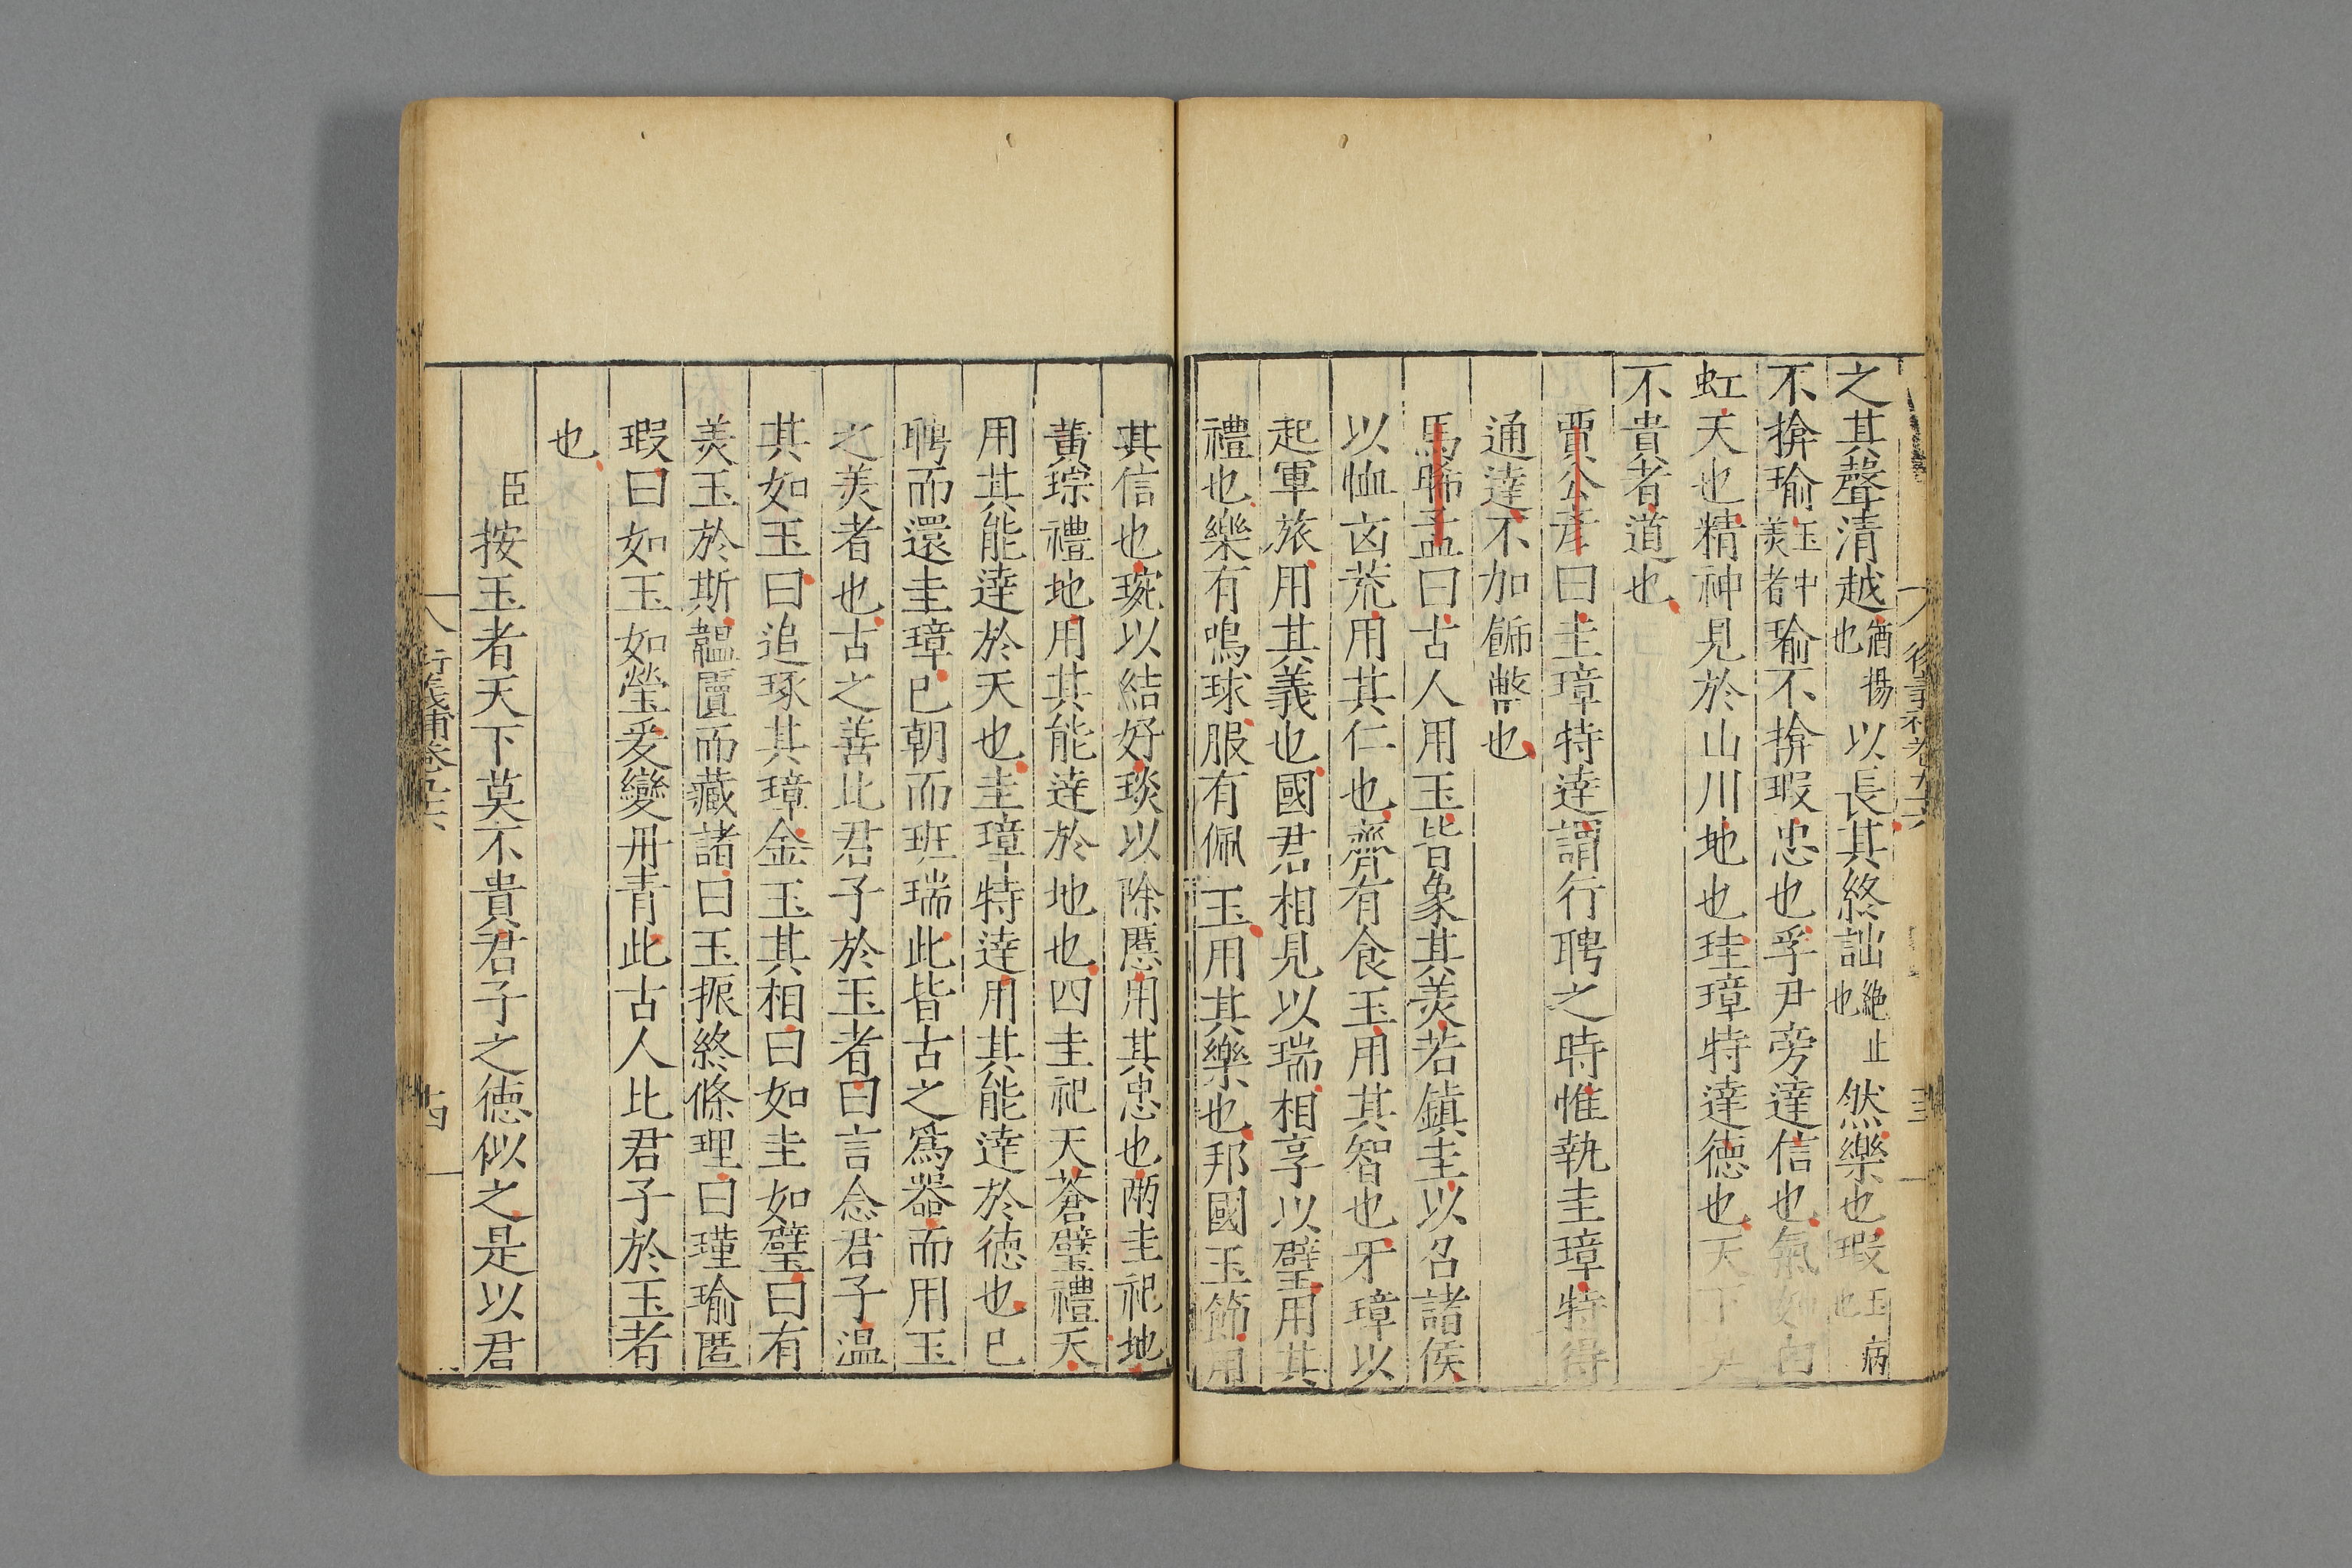 之其聲清越猶揚也以長其終詘絶止也然樂也瑕玉病也
不揜瑜玉中羙者瑜不揜瑕忠也孚尹旁達信也氣如白
虹天也精神見於山川地也珪璋特達徳也天下莫
不貴者道也
賈公彥曰圭璋特達謂行聘之時惟執圭璋特得
通達不加餙幣也
馬晞孟曰古人用玉皆象其羙若鎮圭以召諸侯
以恤凶荒用其仁也齊有食玉用其智也牙璋以
起軍旅用其義也國君相見以瑞相享以璧用其
禮也樂有鳴球服有佩玉用其樂也邦國玉節用
其信也琬以結好琰以除慝用其忠也兩圭祀地
黃琮禮地用其能逹於地也四圭祀天蒼璧禮天
用其能逹於天也圭璋特逹用其能逹於徳也已
聘而還圭璋已朝而班瑞此皆古之爲器而用玉
之羙者也古之善比君子於玉者曰言念君子溫
其如玉曰追琢其璋金玉其相曰如圭如璧曰有
羙玉於斯韞匵而藏諸曰玉振終條理曰瑾瑜匿
瑕曰如玉如瑩爰變丹青此古人比君子於玉者
也
臣按玉者天下莫不貴君子之徳似之是以君
十四